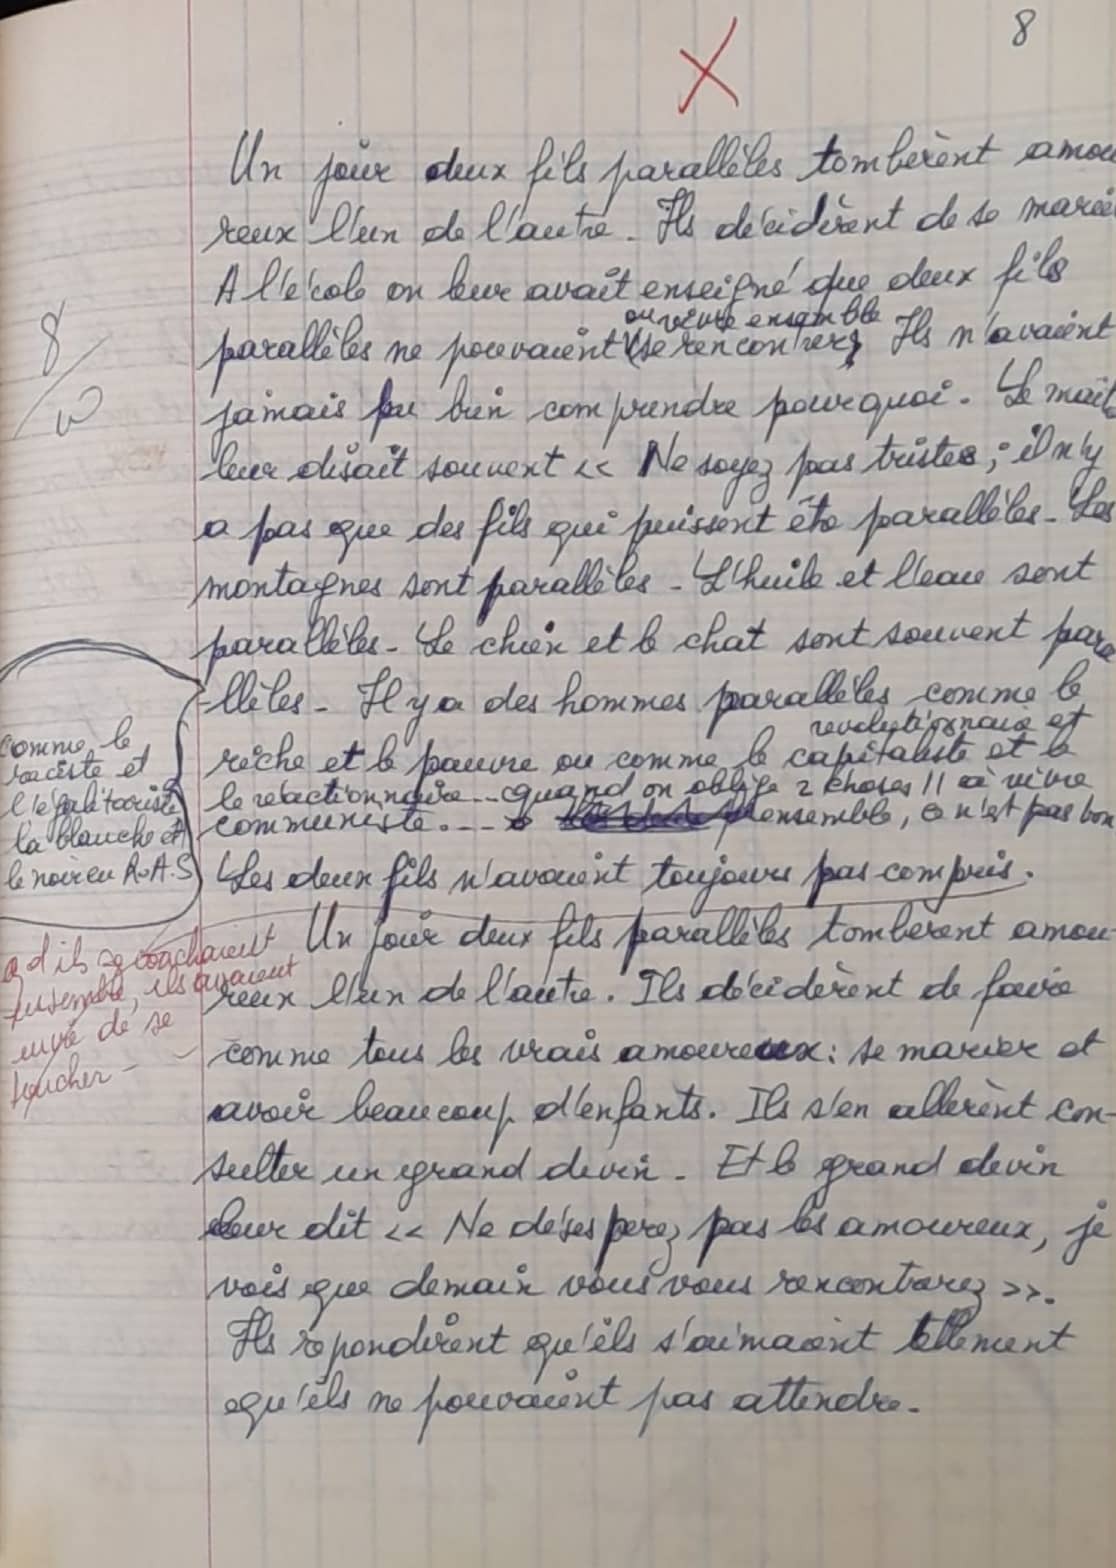 8
Un jour deux fils parallèles tombèrent amou
reux l'un de l'autre. Ils décidèrent de se marier
A l'école on leur avait enseigné que deux fils
ou vivre ensemble
parallèles ne pouvaient (se rencontrer). Ils n'avaient
jamais pu bien comprendre pourquoi. Le maît
leur disait souvent << Ne soyez pas tristes ; il n'y
a pas que des fils qui puissent être parallèles. Les
montagnes sont parallèles - L'huile et l'eau sont
parallèles - Le chien et le chat sont souvent para
-llèles - Il y a des hommes parallèles comme le
revolutionnaire et
riche et le pauvre ou comme le capitaliste et le
le réactionnaire... quand on oblige 2 choses // à vivre
communiste.... ensemble, ce n'est pas bon
Les deux fils n'avaient toujours pas compris.
comme le
raciste et
l'égalitariste
la blanche et
le noir en R.A.S
8/
Un jour deux fils parallèles tombèrent amou-
reux l'un de l'autre. Ils décidèrent de faire
comme tous les vrais amoureux : se marier et
avoir beaucoup d'enfants. Ils s'en allèrent con-
sulter un grand devin - Et le grand devin
leur dit << Ne désesperez pas les amoureux, je
vois que demain vous vous rencontrerez >>.
Ils repondirent qu'ils s'aimaient tellement
qu'ils ne pouvaient pas attendre -
qd ils se couchaient
ensemble, ils avaient
envie de se
toucher -